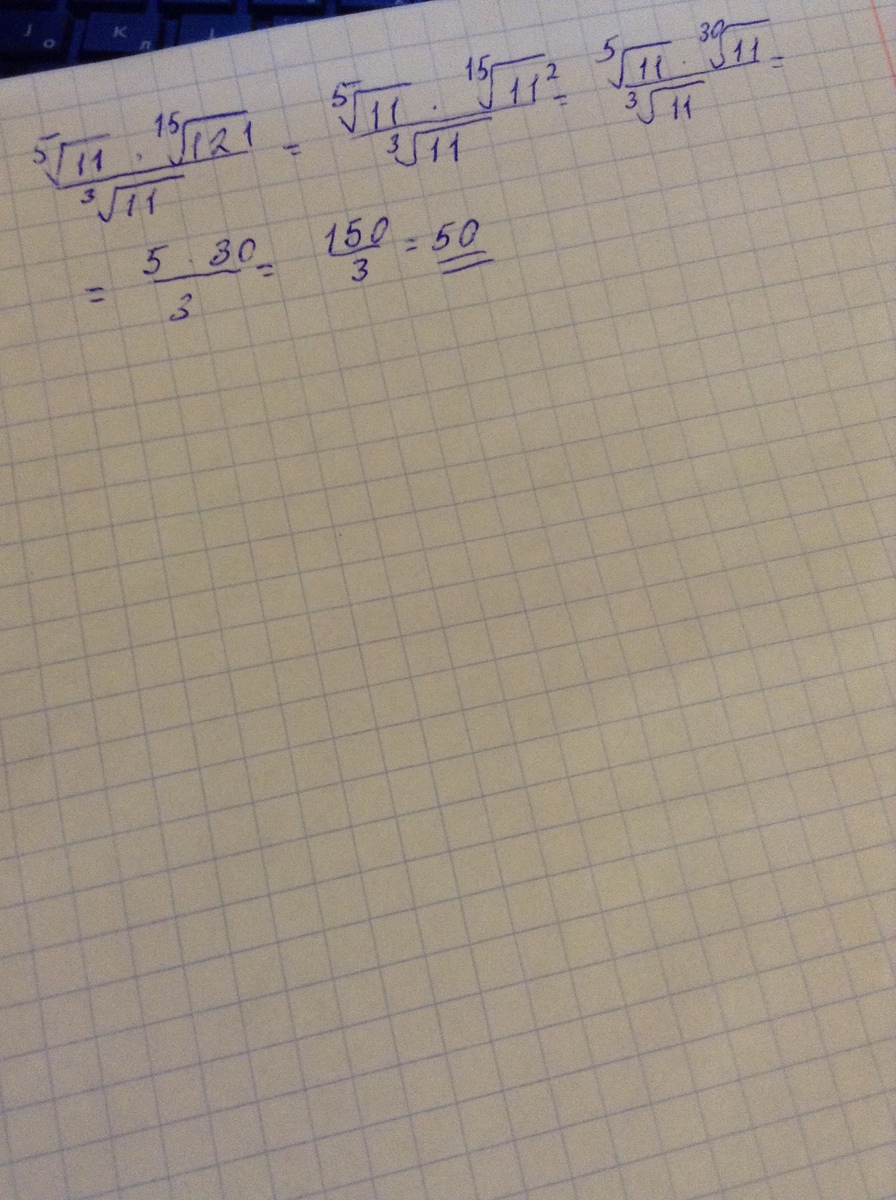 J О К Л
\frac{\sqrt[5]{11} \cdot \sqrt[15]{121}}{\sqrt[3]{11}} = \frac{\sqrt[5]{11} \cdot \sqrt[15]{11^2}}{\sqrt[3]{11}} = \frac{\sqrt[5]{11} \cdot \sqrt[30]{11}}{\sqrt[3]{11}} =
= \frac{5 \cdot 30}{3} = \frac{150}{3} = 50